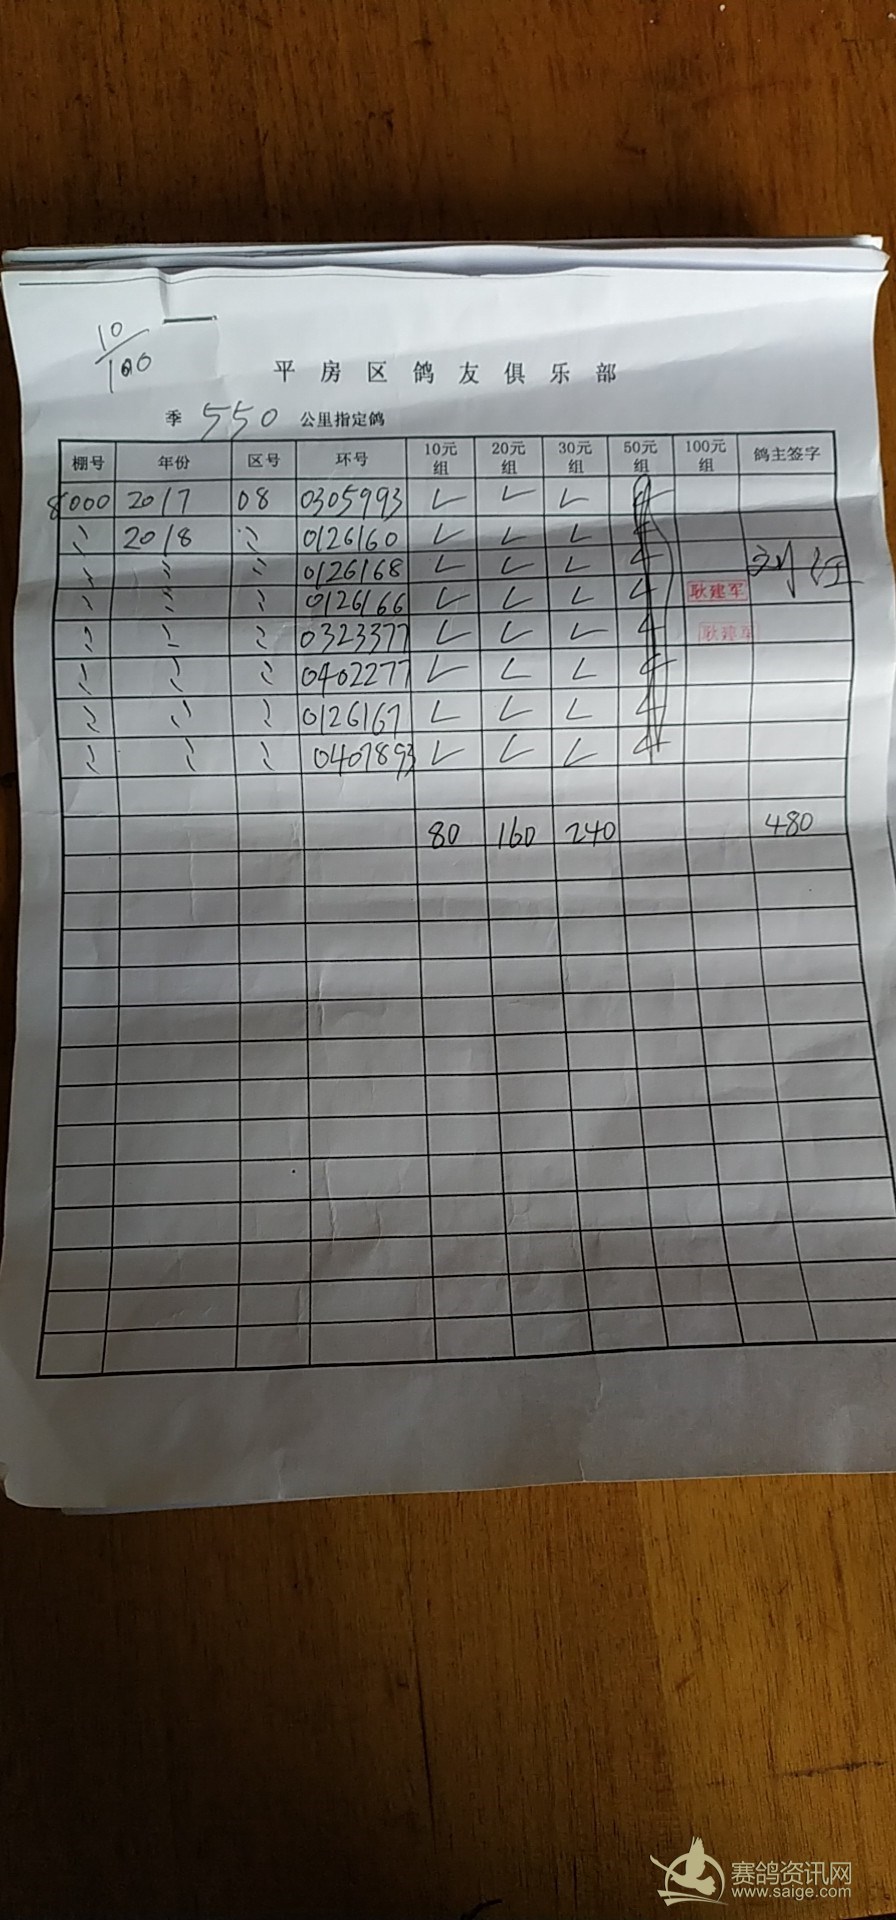 10/100
平房区鸽友俱乐部
季 550 公里指定鸽
棚号 年份 区号 环号 10元组 20元组 30元组 50元组 100元组 鸽主签字
8000 2017 08 0305993 ✓ ✓ ✓
〃 2018 〃 0126160 ✓ ✓ ✓
〃 〃 〃 0126168 ✓ ✓ ✓
〃 〃 〃 0126166 ✓ ✓ ✓ 耿建军
〃 〃 〃 0323377 ✓ ✓ ✓ 耿建军
〃 〃 〃 0402277 ✓ ✓ ✓
〃 〃 〃 0126167 ✓ ✓ ✓
〃 〃 〃 0407893 ✓ ✓ ✓
80 160 240 480
赛鸽资讯网
www.saige.com